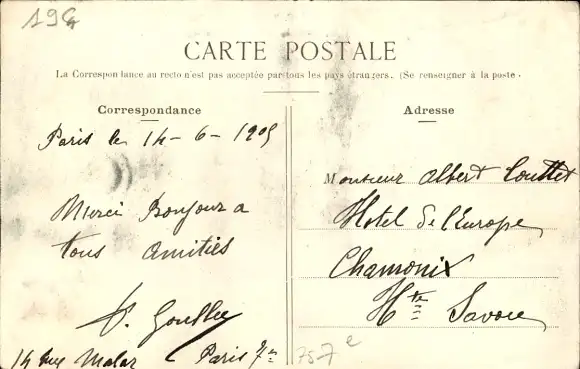 196
CARTE POSTALE
La Correspondance au recto n'est pas acceptée par tous les pays étrangers. (Se renseigner à la poste.
Correspondance
Paris le 14-6-1905
Merci Bonjour a
tous amitiés
14 rue Malar Paris 7e
Adresse
Monsieur Albert Couttet
Hotel de l'Europe
Chamonix
Hte Savoie
75-7e